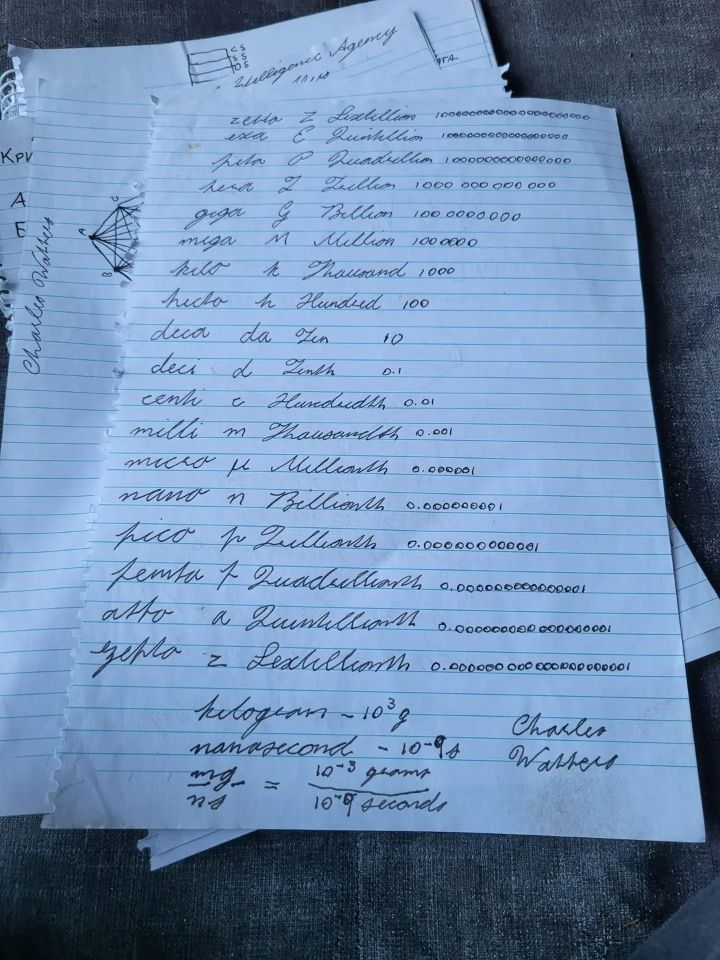 CS
SS
OS
Intelligence Agency
Кри
А
Б
A
B
C
Charles Watters
zetta Z Sextillion 1000000000000000000000
exa E Quintillion 1000000000000000000
peta P Quadrillion 1000000000000000
tera T Trillion 1000 000 000 000
giga G Billion 1000000000
mega M Million 1000000
kilo k Thousand 1000
hecto h Hundred 100
deca da Ten 10
deci d Tenth 0.1
centi c Hundredth 0.01
milli m Thousandth 0.001
micro μ Millionth 0.000001
nano n Billionth 0.000000001
pico p Trillionth 0.000000000001
femta f Quadrillionth 0.000000000000001
atto a Quintillionth 0.000000000000000001
zepto z Sextillionth 0.000000000000000000001
kilogram - 10³g
nanasecond - 10⁻⁹s
mg/ns = 10⁻³ grams / 10⁻⁹ seconds
Charles
Watters